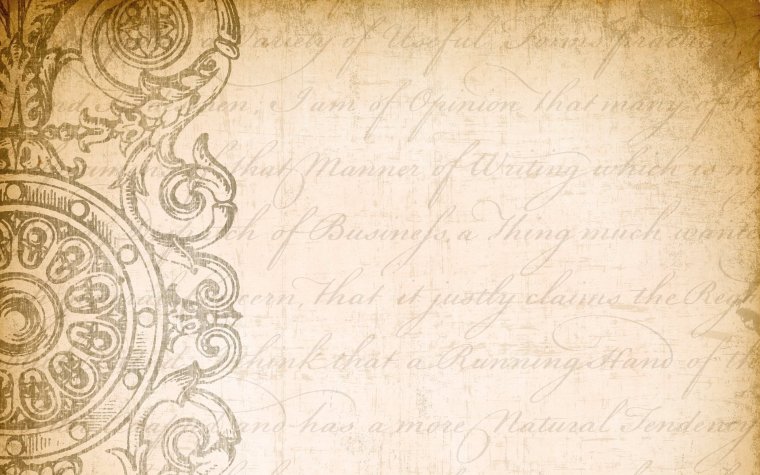 Variety of Useful Forms practised
men, I am of Opinion that many of the
that Manner of Writing which is m
ch of Business, a Thing much wante
cern, that it justly claims the Reg
think that a Running Hand of th
has a more Natural Tendency